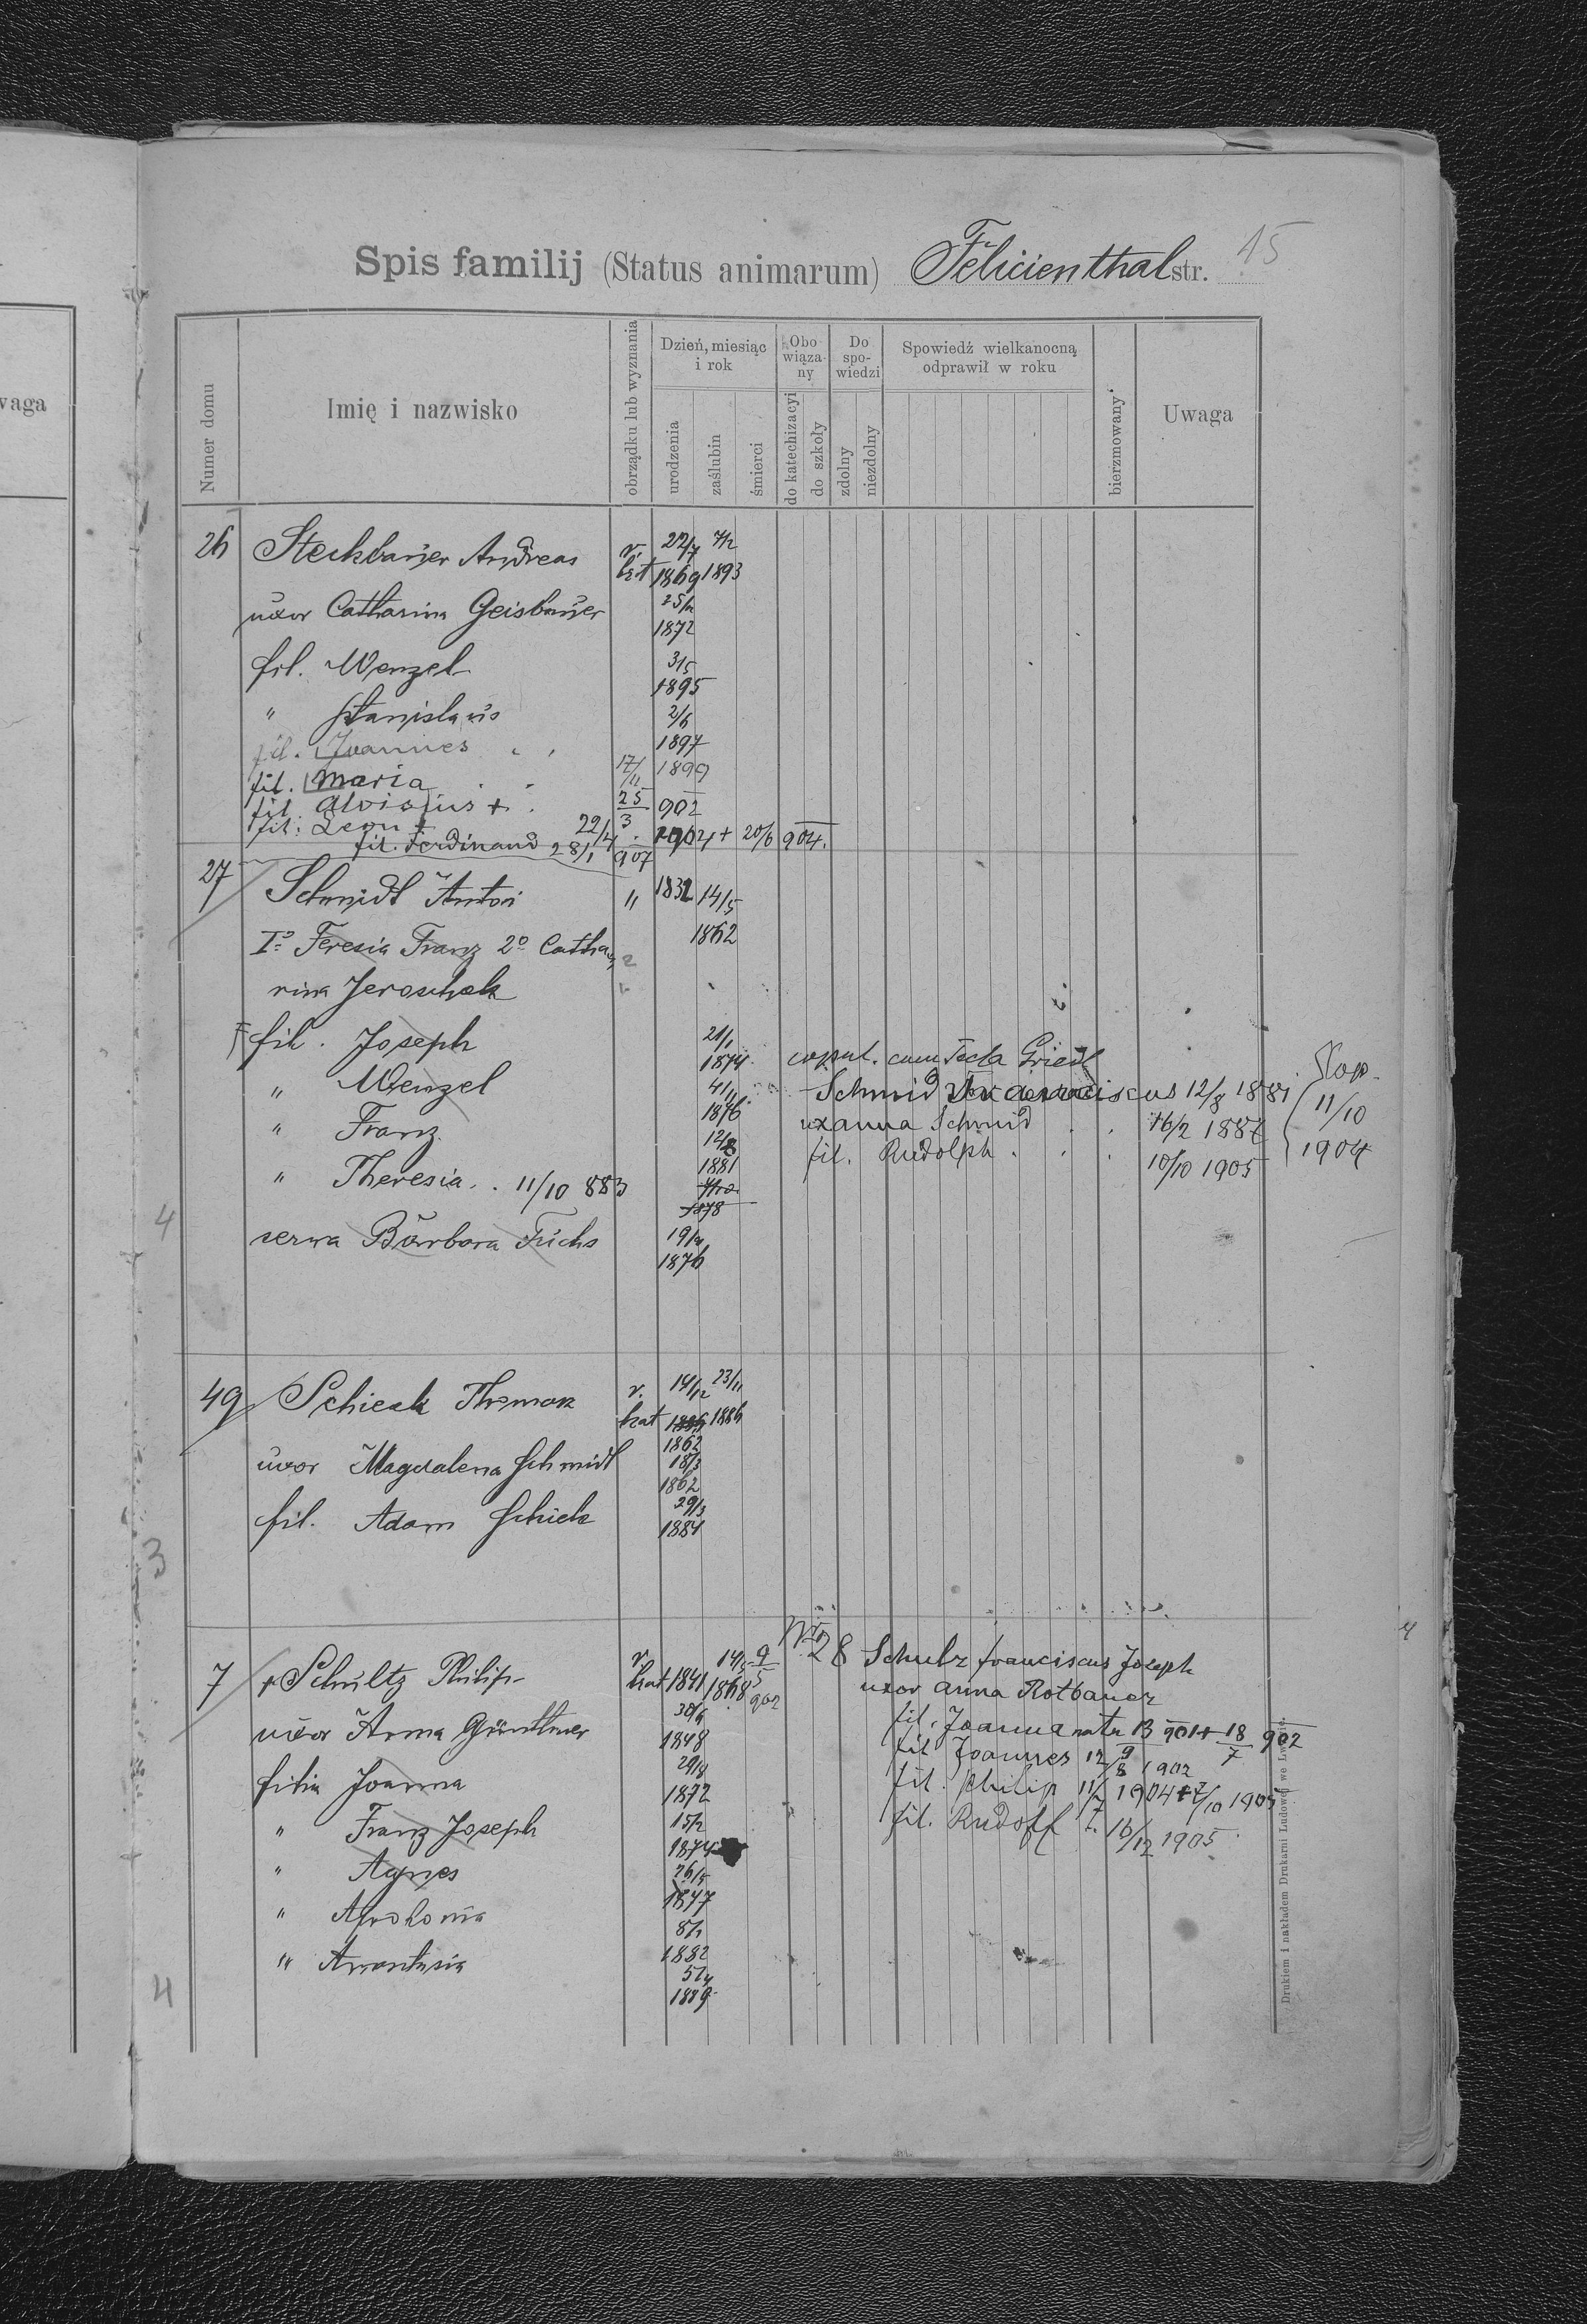 vaga
Spis familij (Status animarum) Felicienthal str. 15
Numer domu
Imię i nazwisko
obrządku lub wyznania
Dzień, miesiąc i rok
urodzenia
zaślubin
śmierci
Obowiąza-ny
do katechizacyi
do szkoły
Do spo-wiedzi
zdolny
niezdolny
Spowiedź wielkanocną odprawił w roku
bierzmowany
Uwaga
26 Steckbauer Andreas r. 22/7 7/2
lat 1869 1893
uxor Catharina Geisbauer 25/2
1872
fil. Wenzel 31/5
1895
" Stanislaus 2/6
1897
fil. Joannes 1899
fil. Maria 17/11
fil. Aloisius + 25/3 902
fil. Leon + 22/4 1904 + 20/6 904.
fil. Ferdinand 28/1 907
27 Schmidt Anton " 1832 14/5
I° Teresia Franz 2° Catha 1862
rina Jeroschek
fil. Joseph 21/1
1874 copul. cum Tecla Griedl
" Wenzel 4/11
1876 Schmid Franciscus 12/8 1881
" Franz 12/8 ux anna Schmid . . 16/2 1887
1881 fil. Rudolph . . . 10/10 1905
Kop.
11/10
1904
" Theresia . . 11/10 883
1878
4
serva Barbara Fuchs 19/4
1876
49 Schick Thomas r. 14/12 23/11
lat 1886
1862
uxor Magdalena Schmidt 18/3
1862
fil. Adam Schick 29/3
1884
3
7 + Schultz Philip r. 14/5 9/5 902
lat 1841 1868
uxor Anna Günthner 30/4
1848
filia Joanna 29/8
1872
" Franz Joseph 15/2
1874
" Agnes 26/5
1877
" Apolonia 8/2
1882
" Anastasia 5/4
1889
4
Nro 28 Schulz franciscus Joseph
uxor anna Rotbauer
fil. Joanna nata 13/9 901 + 18/7 902
fil Joannes 12/8 1902
fil. philip 11/7 1904 + 7/10 1905
fil. Rudolf 16/12 1905
Drukiem i nakładem Drukarni Ludowej we Lwowie.